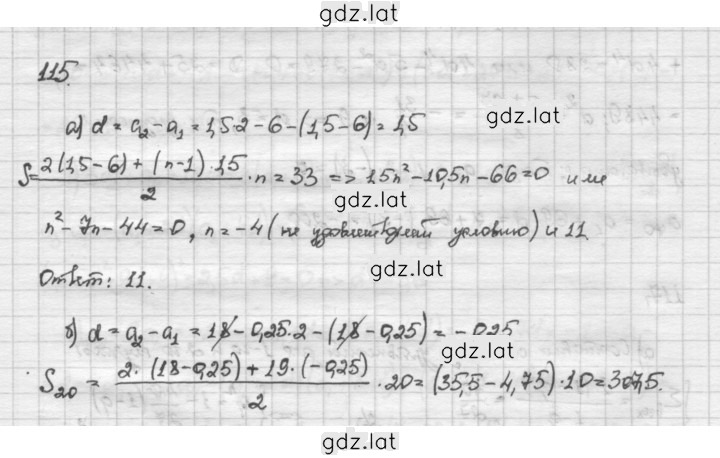 gdz.lat
115.
а) d = a₂ – a₁ = 1,5·2 – 6 – (1,5 – 6) = 1,5
gdz.lat
S = (2(1,5 – 6) + (n – 1)·1,5)/2 · n = 33 => 1,5n² – 10,5n – 66 = 0 или
gdz.lat
n² – 7n – 44 = 0, n = –4 (не удовлетворяет условию) и 11.
gdz.lat
Ответ: 11.
б) d = a₂ – a₁ = 18 – 0,25·2 – (18 – 0,25) = – 0,25
gdz.lat
S₂₀ = (2·(18 – 0,25) + 19·(–0,25))/2 · 20 = (35,5 – 4,75)·10 = 307,5.
gdz.lat